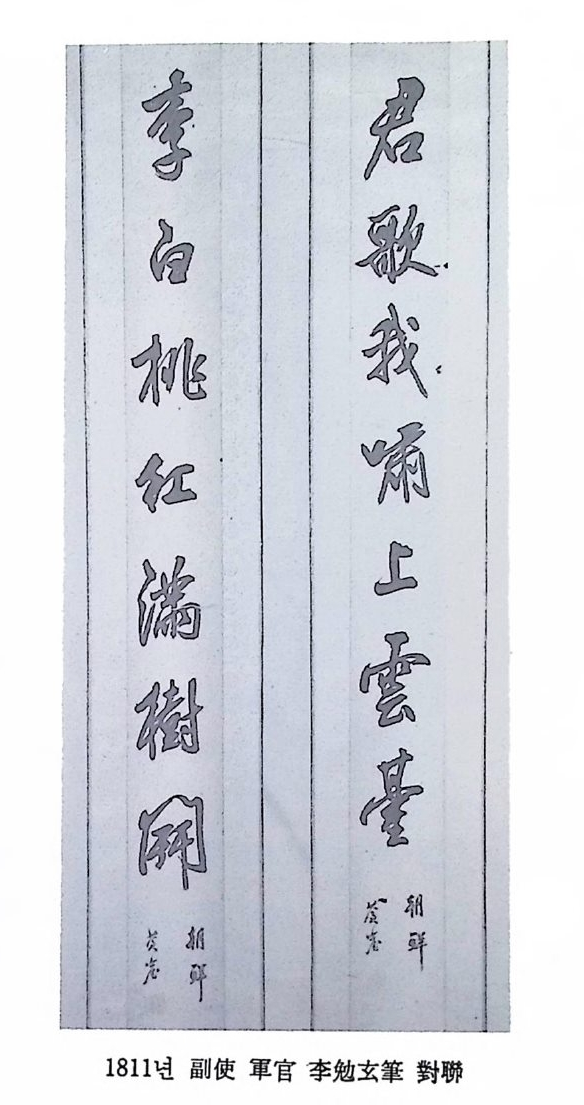 君歌我嘯上雲臺
朝鮮
李白桃紅滿樹開
朝鮮
1811년 副使 軍官 李勉玄筆 對聯